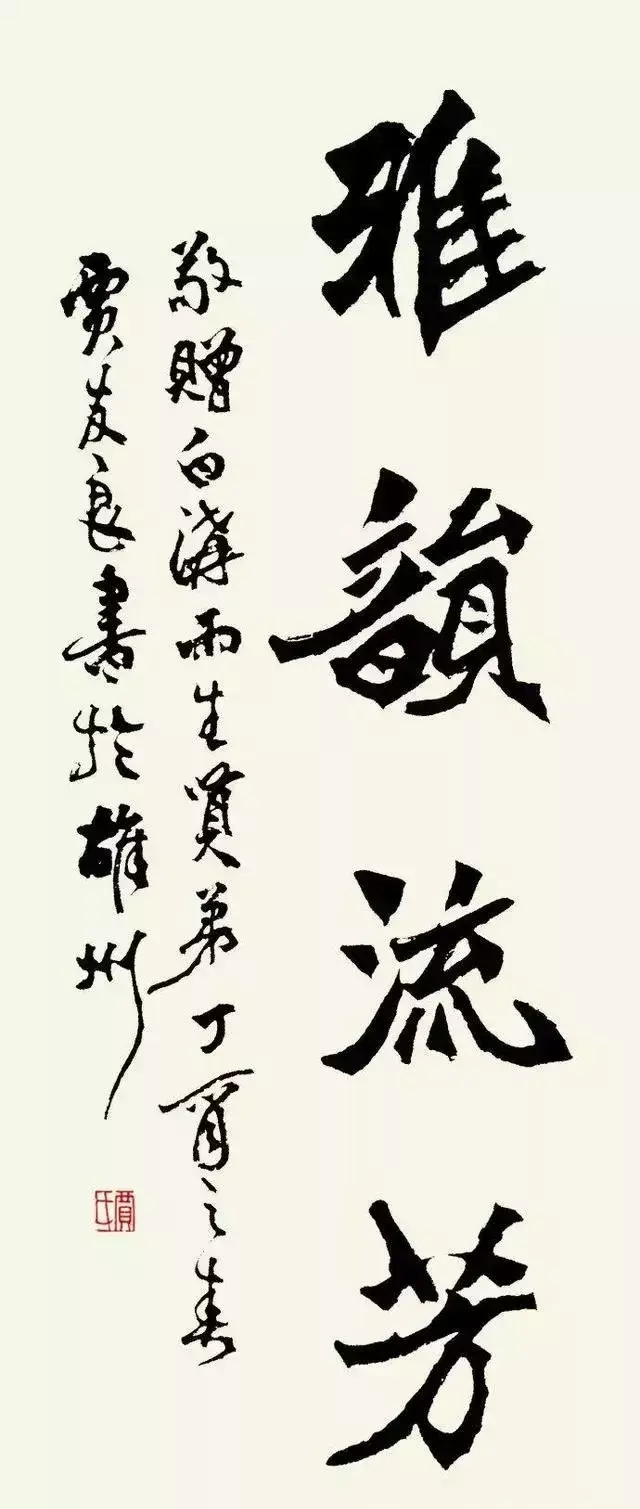 雅韻流芳
敬贈白溝雨生賢弟丁酉之春
賈友良書於雄州
賈氏